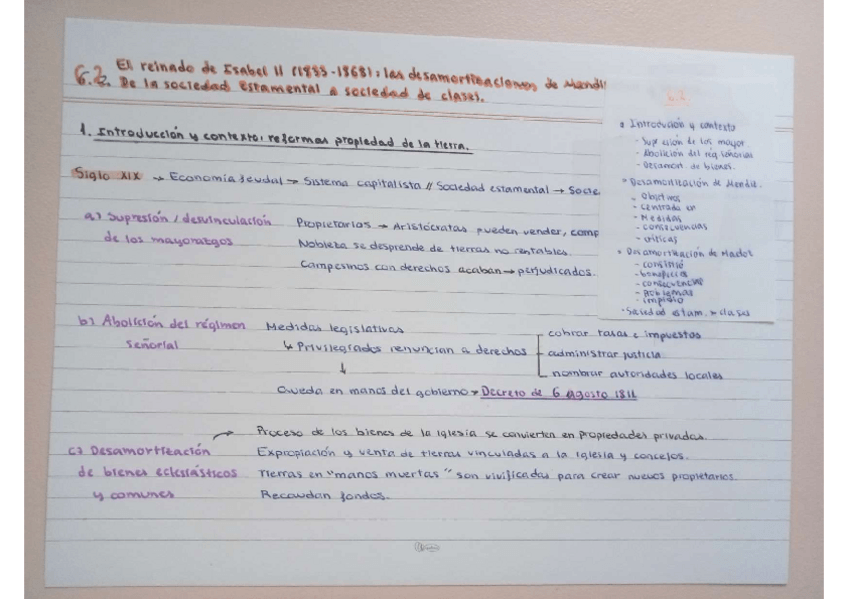 6.2. El reinado de Isabel II (1833-1868): las desamortizaciones de Mendi
De la sociedad Estamental a sociedad de clases.
1. Introducción y contexto: reformas propiedad de la tierra.
Siglo XIX → Economía feudal → Sistema capitalista // Sociedad estamental → Socie
a) Supresión / desvinculación de los mayorazgos
Propietarios → Aristócratas pueden vender, comp
Nobleza se desprende de tierras no rentables.
Campesinos con derechos acaban → perjudicados.
b) Abolición del régimen señorial
Medidas legislativas
↳ Privilegiados renuncian a derechos
cobrar tasas e impuestos
administrar justicia
nombrar autoridades locales
↓
Queda en manos del gobierno → Decreto de 6 Agosto 1811
c) Desamortización de bienes eclesiásticos y comunes
Proceso de los bienes de la iglesia se convierten en propiedades privadas.
Expropiación y venta de tierras vinculadas a la iglesia y concejos.
Tierras en "manos muertas" son vivificadas para crear nuevos propietarios.
Recaudan fondos.
6.2
• Introdución y contexto
- Supresión de los mayor
- Abolición del rég señorial
- Desamort. de bienes.
• Desamortización de Mendiz.
- Objetivos
- Centrado en
- Medidas
- consecuencias
- críticas
• Desamortización de Madoz
- consistió
- beneficios
- consecuencias
- problemas
- impidió
- Sociedad estam. → clases